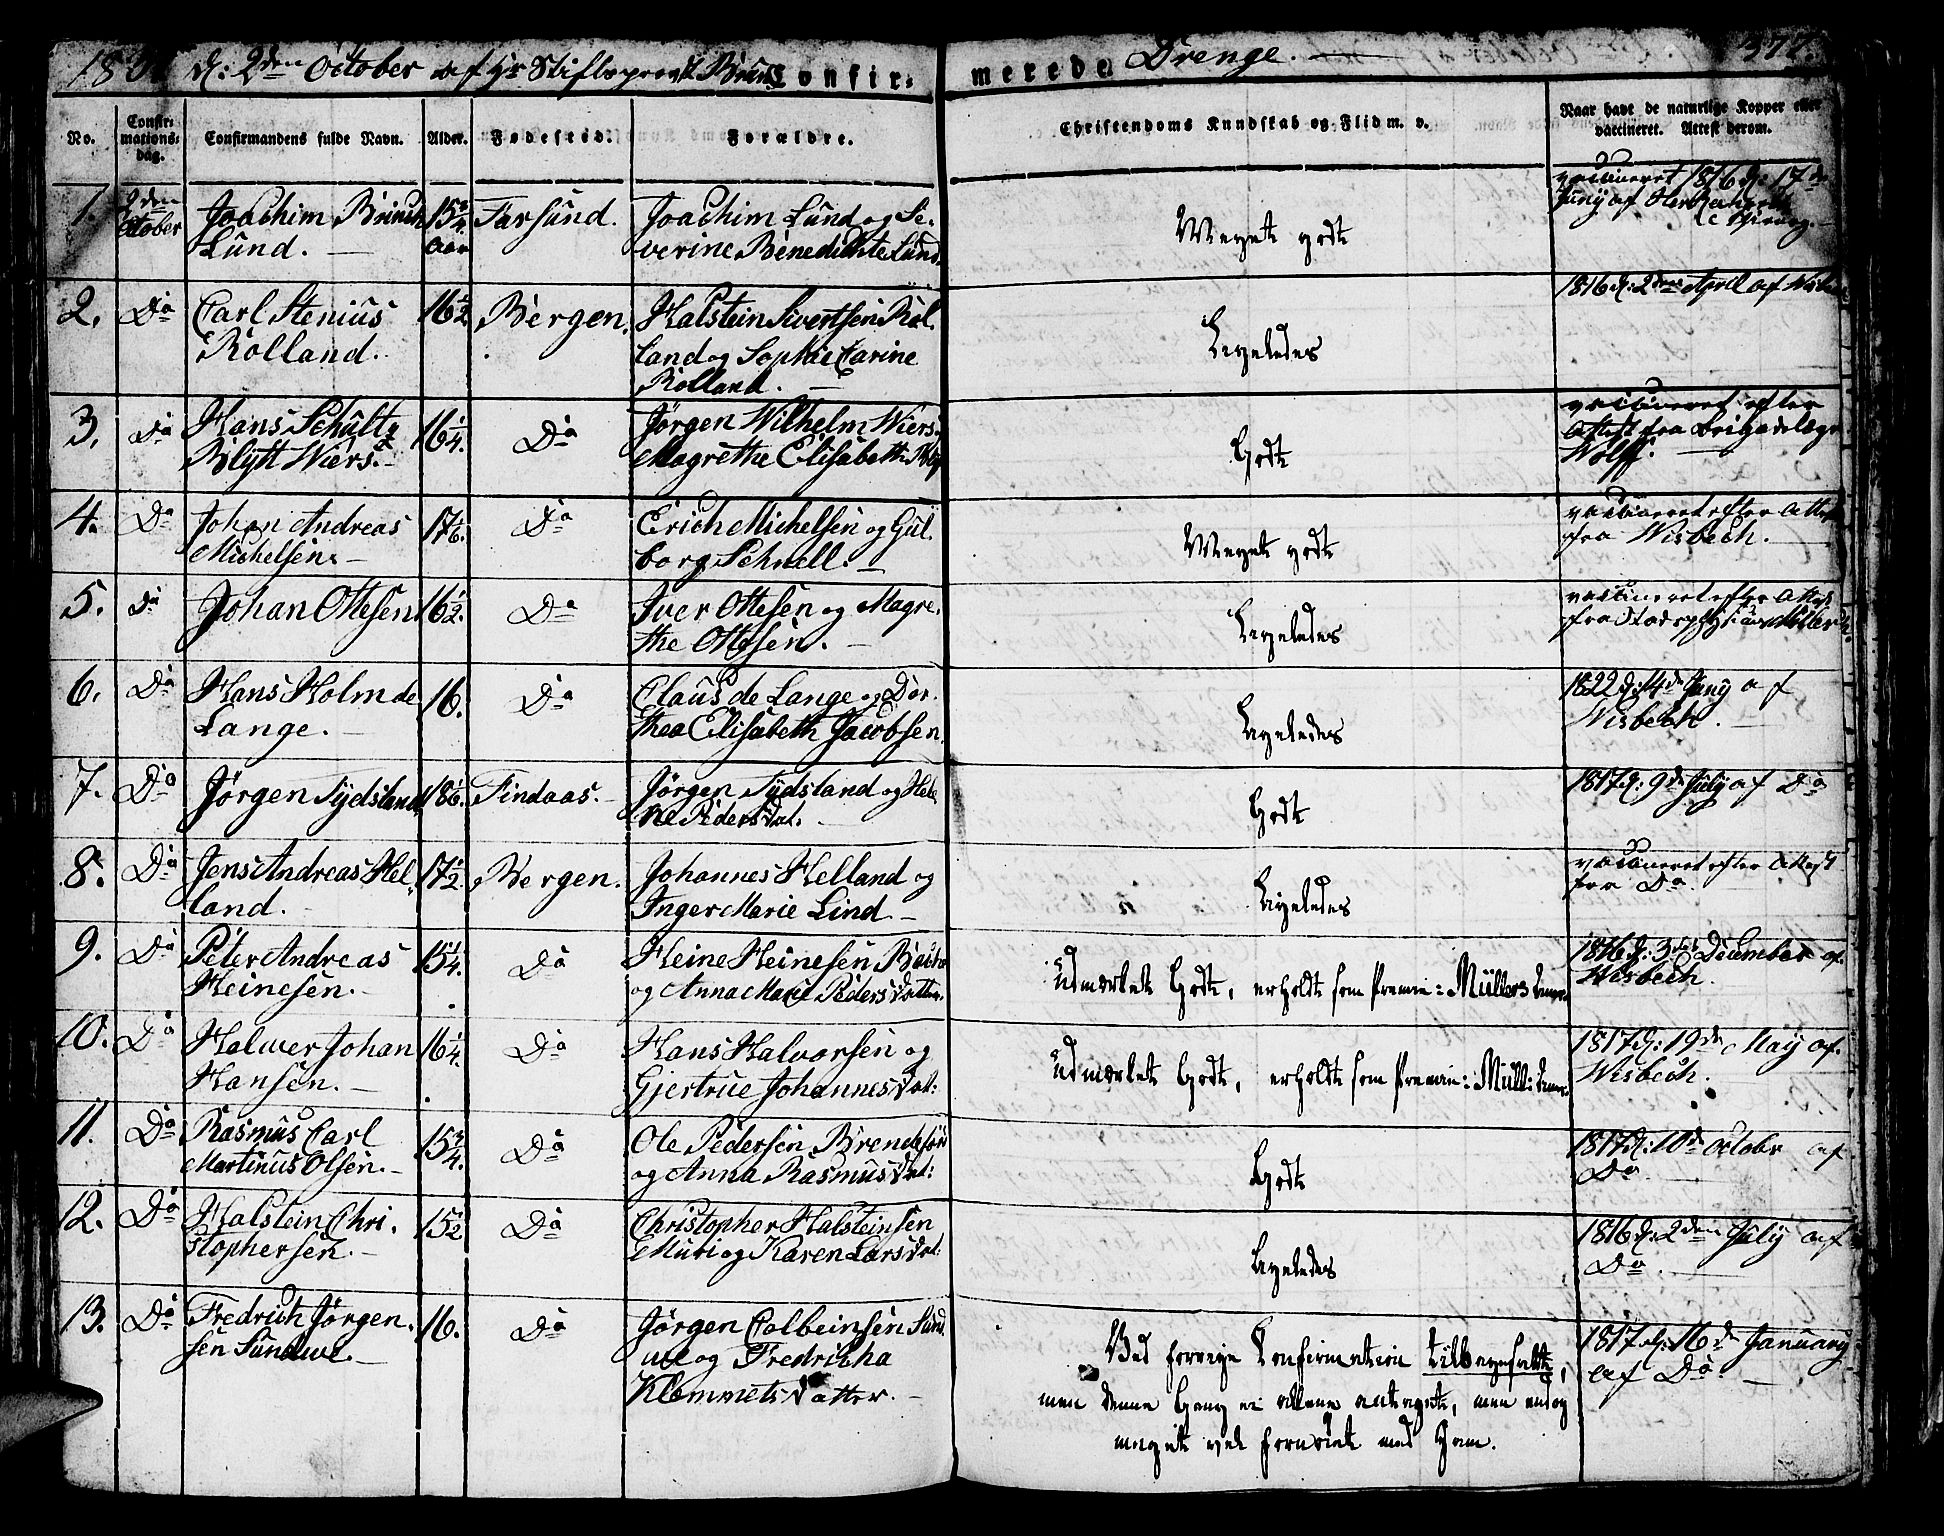 d: 2den October af Hr Stiftsprovst
Confir-
merede Drenge.
377.
No.
Confir-
mations-
dag.
Confirmandens fulde Navn.
Alder.
Fødested.
Forældre.
Christendoms Kundskab og Flid m. v.
Naar havt de naturlige Kopper eller
vaccineret. Attest derom.
1.
2den
October
Joachim Brinch
Lund.
15 3/4
Aar
Farsund.
Joachim Lund og Se-
verine Benedichte Lund.
Meget godt
vaccineret 1816 d: 17de
Juny af
2.
Do
Carl Stenius
Rolland.
16 1/2
Bergen.
Halstein Sivertsen Rol-
land og Sophie Carine
Rolland.
Ligeledes
1816 d: 2den April af
3.
Do
Hans Schultz
Blytt Wiers.
16 1/4.
Do
Jørgen Wilhelm Wiers
Magrethe Elisabeth
Godt
vaccineret efter
Attest fra Brigadelæge
Wolff.
4.
Do
Johan Andreas
Michelsen.
17 1/6.
Do
Erich Michelsen og Gul-
borg Schnell.
Meget godt
vaccineret efter Attest
fra Wisbech.
5.
Do
Johan Ottesen
16 1/2.
Do
Iver Ottesen og Magre-
the Ottesen.
Ligeledes
vaccineret efter Attest
fra Stadsphysicus
6.
Do
Hans Holm de
Lange.
16.
Do
Claus de Lange og Dor-
thea Elisabeth Jacobsen.
Ligeledes
1822 d: 14de Juny af
Wisbech.
7.
Do
Jørgen Sydsland
18 1/6.
Findaas.
Jørgen Sydsland og Hele-
ne Pedersdat.
Godt
1817 d: 9de July af Do
8.
Do
Jens Andreas Hel-
land.
17 1/2.
Bergen.
Johannes Helland og
Inger Marie Lind
Ligeledes
vaccineret efter Attest
fra Do
9.
Do
Peter Andreas
Heinesen.
15 1/4.
Do
Heine Heinesen
og Anna Marie Pedersdatter.
Udmærket Godt, erholdt som Præmie: Müllers
1816 d: 3die December af
Wisbech.
10.
Do
Halwer Johan
Hansen.
16 1/4.
Do
Hans Halvorsen og
Gjertrue Johannesdat:
Udmærket Godt, erholdt som Præmie: Müll:
1817 d: 19de May af
Wisbech.
11.
Do
Rasmus Carl
Martinus Olsen.
15 3/4.
Do
Ole Pedersen
og Anna Rasmusdat:
Godt
1817 d: 10de October af
Do
12.
Do
Halstein Chri-
stophersen.
15 1/2
Do
Christopher Halsteinsen
Muri og Karen Larsdat:
Ligeledes
1816 d: 2den July af
Do.
13.
Do
Fredrich Jørgen-
sen Sundwe.
16.
Do
Jørgen Colbeinsen Sund-
we og Fredricha
Klemmetsdatter.
Ved forrige Confirmation tilbagesatte,
men denne Gang ei allene antagede, men endog
meget vel fornøiet med Ham.
1817 d: 16de January
af Do.